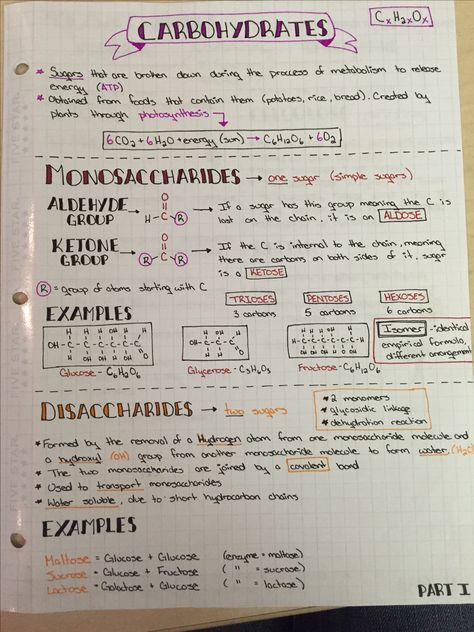 CARBOHYDRATES
CxH2xOx
* Sugars that are broken down during the process of metabolism to release
energy (ATP)
* Obtained from foods that contain them (potatoes, rice, bread). Created by
plants through photosynthesis
6CO2 + 6H2O + energy (sun) → C6H12O6 + 6O2
MONOSACCHARIDES → one sugar (simple sugars)
ALDEHYDE GROUP →
O
H-C-R
→ If a sugar has this group meaning the C is
last on the chain, it is an ALDOSE
KETONE GROUP →
O
R-C-R
→ If the C is internal to the chain, meaning
there are carbons on both sides of it, sugar
is a KETOSE
R = group of atoms starting with C
TRIOSES PENTOSES HEXOSES
3 carbons 5 carbons 6 carbons
EXAMPLES
Isomer - identical
empirical formula,
different arrangement
Glucose - C6H12O6 Glycerose - C3H6O3 Fructose - C6H12O6
DISACCHARIDES → two sugars
* 2 monomers
* glycosidic linkage
* dehydration reaction
* Formed by the removal of a Hydrogen atom from one monosaccharide molecule and
a hydroxyl (OH) group from another monosaccharide molecule to form water (H2O)
* The two monosaccharides are joined by a covalent bond
* Used to transport monosaccharides
* Water soluble, due to short hydrocarbon chains
EXAMPLES
Maltose = Glucose + Glucose (enzyme = maltase)
Sucrose = Glucose + Fructose ( " = sucrase)
Lactose = Galactose + Glucose ( " = lactase)
PART I